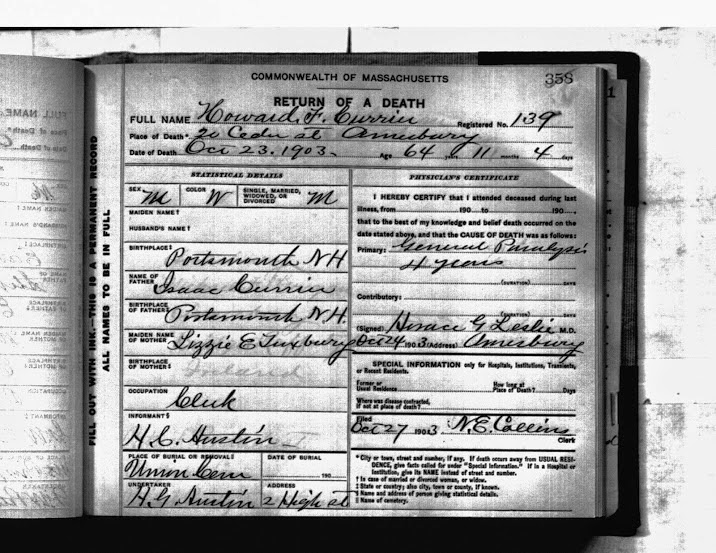 COMMONWEALTH OF MASSACHUSETTS
358
RETURN OF A DEATH
FULL NAME Howard F. Currier Registered No. 139
Place of Death* 20 Cedar st Amesbury
Date of Death Oct 23. 1903. Age 64 years 11 months 4 days
STATISTICAL DETAILS
SEX M COLOR W SINGLE, MARRIED, WIDOWED, OR DIVORCED M
MAIDEN NAME†
HUSBAND'S NAME†
BIRTHPLACE‡ Portsmouth NH
NAME OF FATHER Isaac Currier
BIRTHPLACE OF FATHER‡ Portsmouth N.H.
MAIDEN NAME OF MOTHER Lizzie E Tuxbury
BIRTHPLACE OF MOTHER‡
OCCUPATION Clerk
INFORMANT§ H. G. Austin
PLACE OF BURIAL OR REMOVAL‖ Union Cem DATE OF BURIAL 190
UNDERTAKER H. G. Austin ADDRESS 2 High st
PHYSICIAN'S CERTIFICATE
I HEREBY CERTIFY that I attended deceased during last
illness, from 190 to 190 ,
that to the best of my knowledge and belief death occurred on the
date stated above, and that the CAUSE OF DEATH was as follows:
Primary: General Paralysis
4 years
(DURATION) DAYS
Contributory:
(DURATION) DAYS
(Signed) Horace G Leslie M.D.
Oct 24 1903 (Address) Amesbury
SPECIAL INFORMATION only for Hospitals, Institutions, Transients,
or Recent Residents.
Former or Usual Residence How long at Place of Death? Days
Where was disease contracted,
if not at place of death?
Filed
Oct 27 1903 N. E. Collins
Clerk
*City or town, street and number, if any. If death occurs away from USUAL RESI-
DENCE, give facts called for under "Special Information." If in a Hospital or
Institution, give its NAME instead of street and number.
† In case of married or divorced woman, or widow.
‡ State or country; also city, town or county, if known.
§ Name and address of person giving statistical details.
‖ Name of cemetery.
FILL OUT WITH INK.—THIS IS A PERMANENT RECORD
ALL NAMES TO BE IN FULL